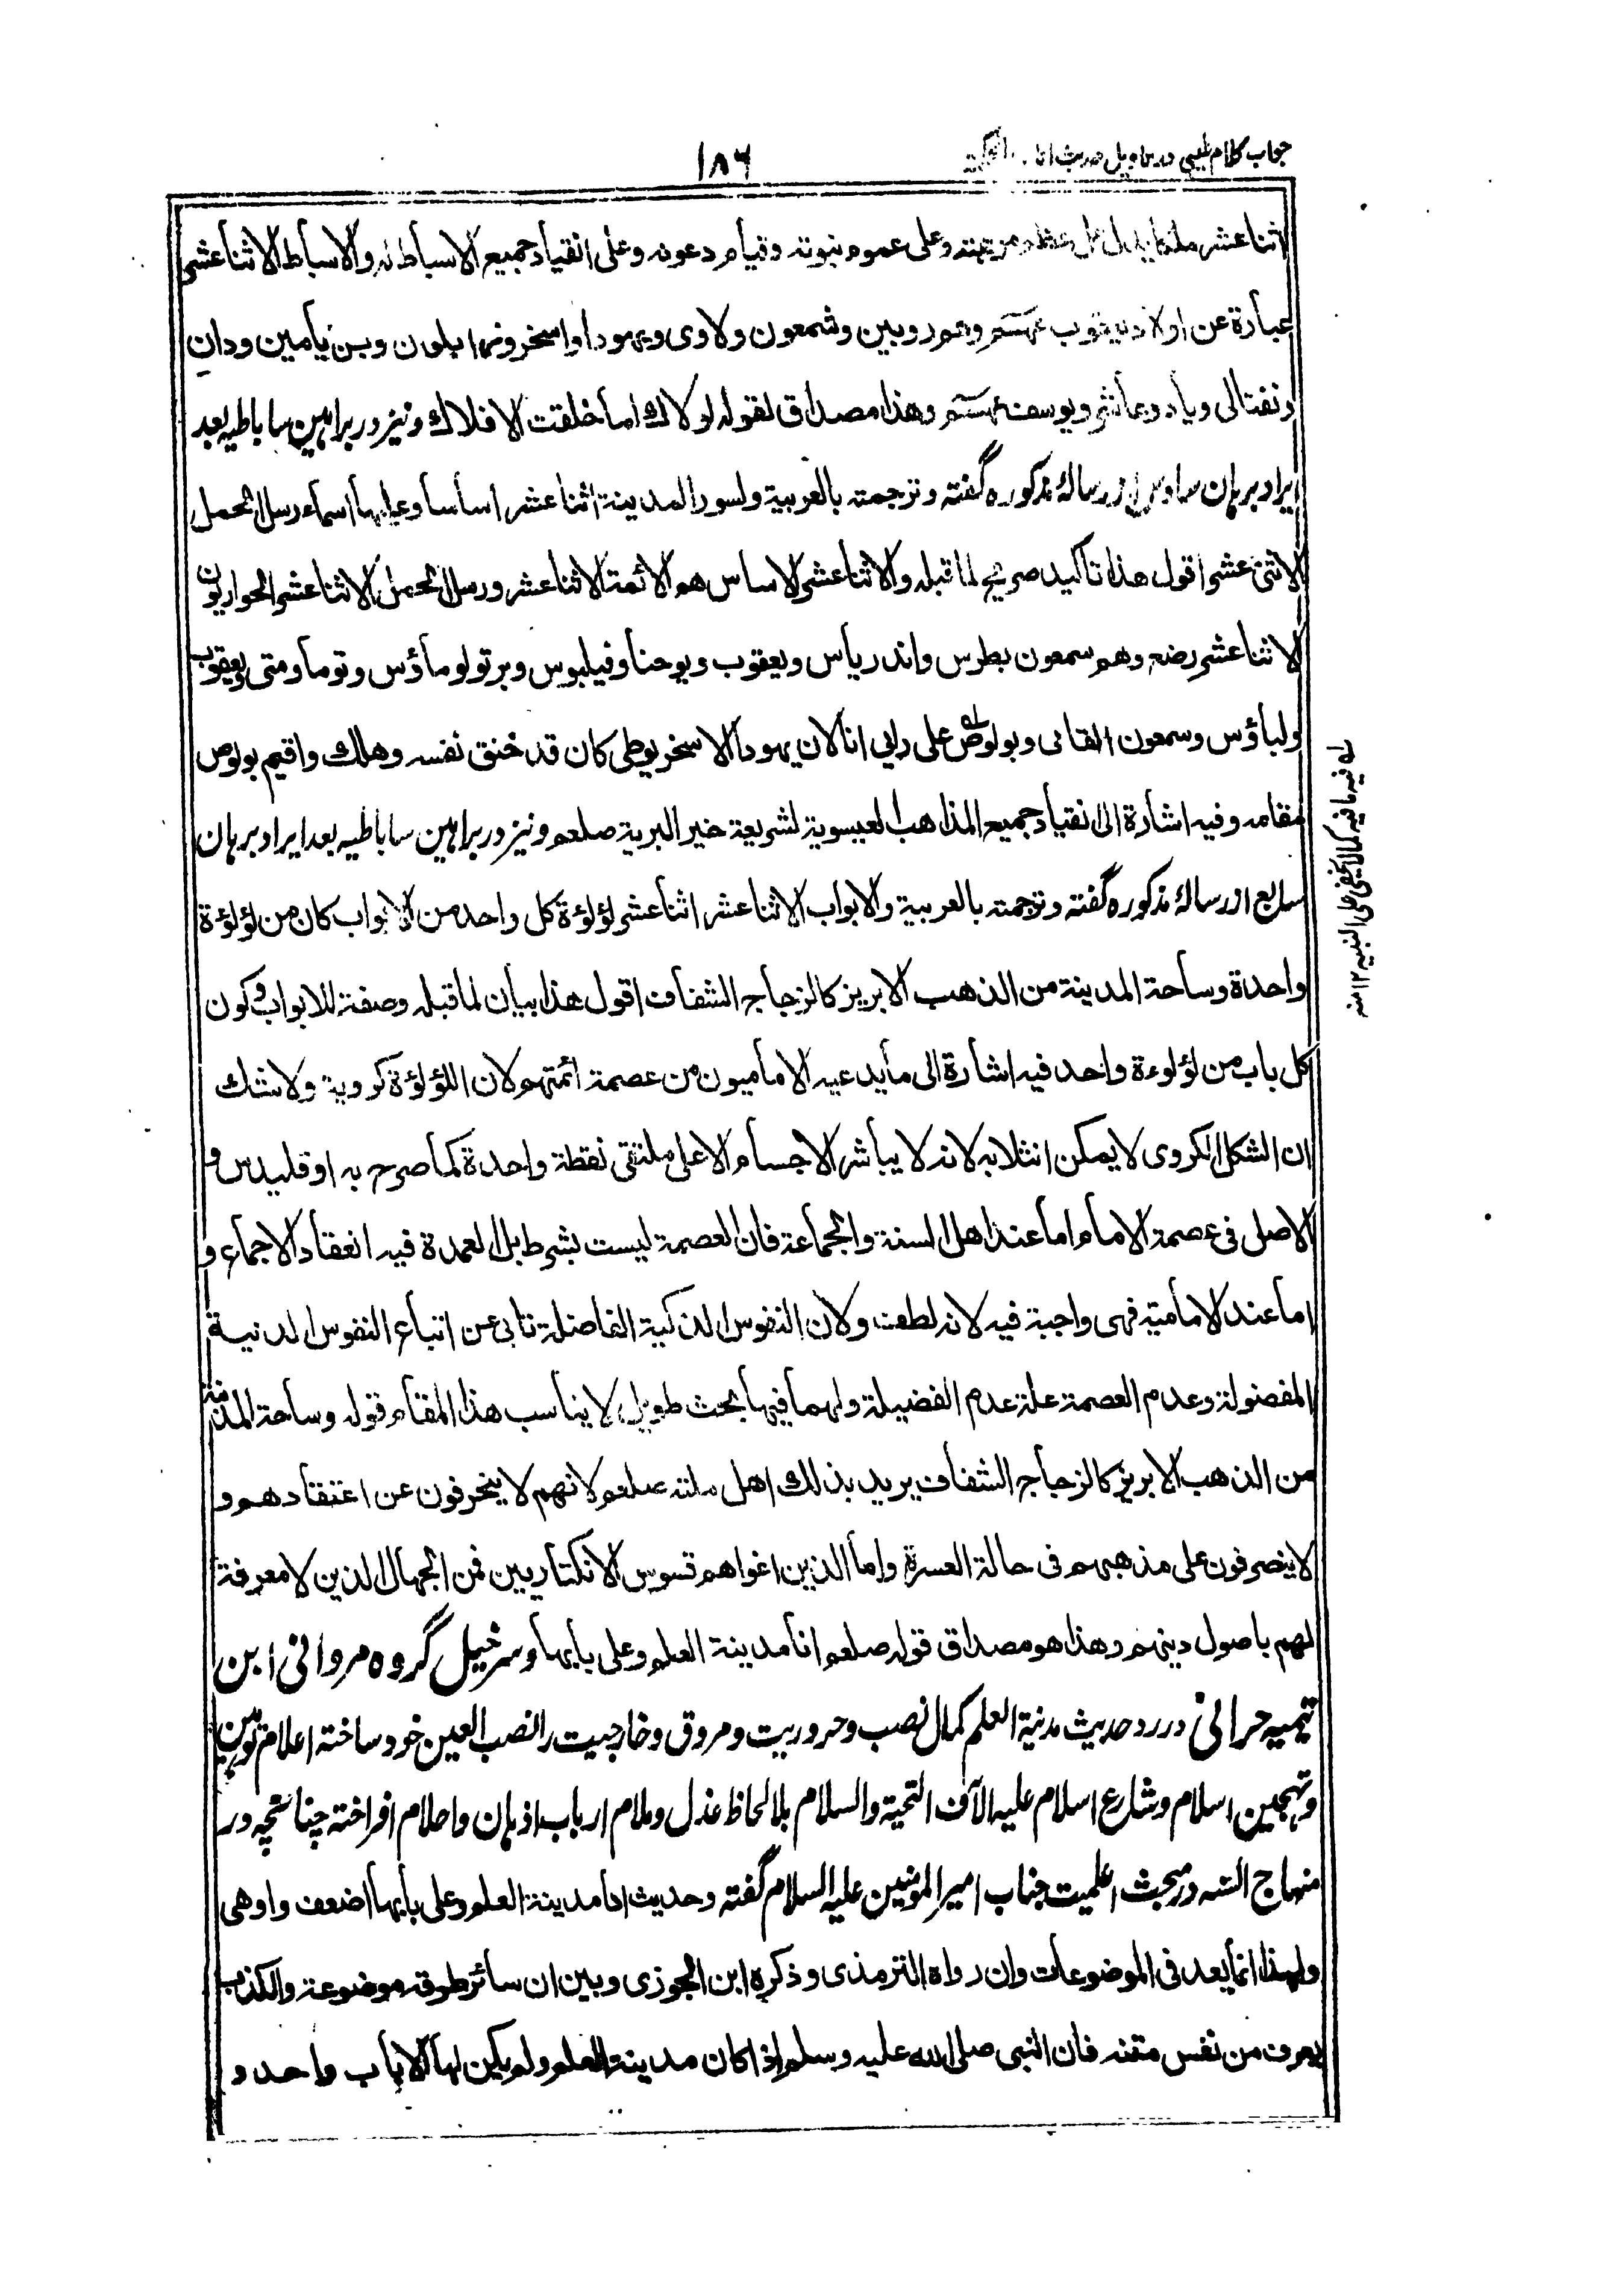 جواب کلام طیبی در تاویل حدیث انا
۱۸۶
اثنا عشر ملکا یدل علی عظم مرتبته وعلی عموم نبوته وقیام دعوته وعلی انقیاد جمیع الاسباط له والاسباط الاثنا عشر
عبارة عن اولاد یعقوب وهم روبین وشمعون ولاوی ویهودا واسخر وزابلون وبن یامین ودان
ونفتالی ویاد وعاشر ویوسف وهذا مصداق لقوله لولاك لما خلقت الافلاك ونیز در براهین ساباطیه بعد
ایراد برهان سادس از رسالۀ مذکوره گفته وترجمته بالعربیة ولسور المدینة اثنا عشر اساسا وعلیها اسماء رسل الحمل
الاثنی عشر اقول هذا تأکید صریح لما قبله والاثنا عشر الاساس هم الائمة الاثنا عشر ورسل الحمل الاثنا عشر الحواریون
الاثنا عشر رضه وهم سمعون بطرس واندریاس ویعقوب ویوحنا وفیلبوس وبرتولوماؤس وتوما ومتی ویعقوب
ولباؤس وسمعون القانی وبولوص علی رایی انا لان یهودا الاسخریوطی کان قد خنق نفسه وهلك واقیم بولوص
مقامه وفیه اشارة الی انقیاد جمیع المذاهب العیسویة لشریعة خیر البریة صلعم ونیز در براهین ساباطیه بعد ایراد برهان
سابع از رسالۀ مذکوره گفته وترجمته بالعربیة والابواب الاثنا عشر اثنا عشر لؤلؤة کل واحد من الابواب کان من لؤلؤة
واحدة وساحة المدینة من الذهب الابریز کالزجاج الشفاف اقول هذا بیان لما قبله وصفة للابواب وکون
کل باب من لؤلوءة واحد فیه اشارة الی ما یدعیه الامامیون من عصمة ائمتهم لان اللؤلؤة کرویة ولا شك
ان الشکل الکروی لا یمکن انثلابه لانه لا یباشر الاجسام الا علی ملتقی نقطة واحدة کما صرح به اوقلیدس و
الاصل فی عصمة الامام اما عند اهل السنة والجماعة فان العصمة لیست بشرط بل العمدة فیه انعقاد الاجماع و
اما عند الامامیة فهی واجبة فیه لانه لطف ولان النفوس الذکیة الفاضلة تابی عن اتباع النفوس الدنیة
المفضولة وعدم العصمة علة عدم الفضیلة ولهما فیها بحث طویل لا یناسب هذا المقام قوله وساحة المدینة
من الذهب الابریز کالزجاج الشفاف یرید بذلك اهل ملته صلعم لانهم لا ینحرفون عن اعتقادهم و
لا ینصرفون علی مذهبهم فی حالة العسرة واما الذین اغواهم قسوس الانکتاریین فمن الجهال الذین لا معرفة
لهم باصول دینهم وهذا هو مصداق قوله صلعم انا مدینة العلم وعلی بابها وسرخیل گروه مروانی ابن
تیمیه حرانی در رد حدیث مدینة العلم کمال نصب وحروریت ومروق وخارجیت را نصب العین خود ساخته اعلام توهین
وتهجین اسلام وشارع اسلام علیه الآف التحیة والسلام بلا لحاظ عذل وملام ارباب اذهان واحلام افراخته چنانچه در
منهاج السنه در مبحث اعلمیت جناب امیر المومنین علیه السلام گفته وحدیث انا مدینة العلم وعلی بابها اضعف واوهی
ولهذا انما یعد فی الموضوعات وان رواه الترمذی وذکره ابن الجوزی وبین ان سائر طرقه موضوعة والکذب
یعرف من نفس متنه فان النبی صلی الله علیه وسلم اذا کان مدینة العلم ولم یکن لها الا باب واحد و
له فیه ما فیه کما لا یخفی علی النبیه ۱۲ منه